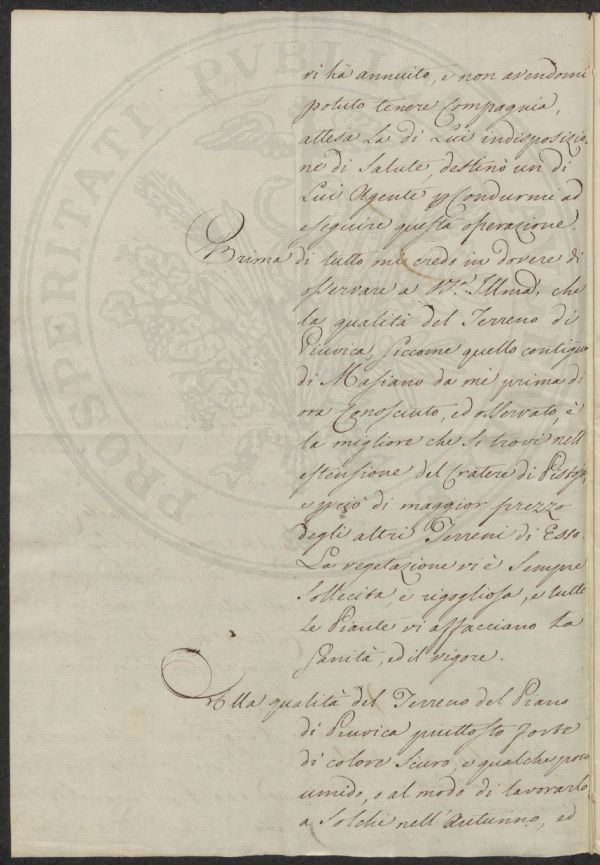 vi hà annuito, e non avendomi
potuto tenere Compagnia,
attesa La di Lui indisposizio-
ne di Salute, destinò un di
Lui Agente p Condurmi ad
eseguire questa operazione.
Prima di tutto mi credo in dovere di
osservare a V.ra Illma, che
la qualità del Terreno di
Piuvica, siccome quello contiguo
di Masiano da mè prima di
ora Conosciuto, ed osservato, è
la migliore che si trovi nell'
estensione del Cratere di
e pciò di maggior prezzo
degli altri Terreni di Esso.
La vegetazione vi è Sempre
Sollecita, e rigogliosa, e tutte
le Piante vi affacciano La
Sanità, ed il vigore.
Alla qualità del Terreno del Piano
di Piuvica piuttosto forte
di colore Scuro, e qualche poco
umido, e al modo di lavorarlo
a Solchi nell'Autunno, ed
PROSPERITATI PVBLI